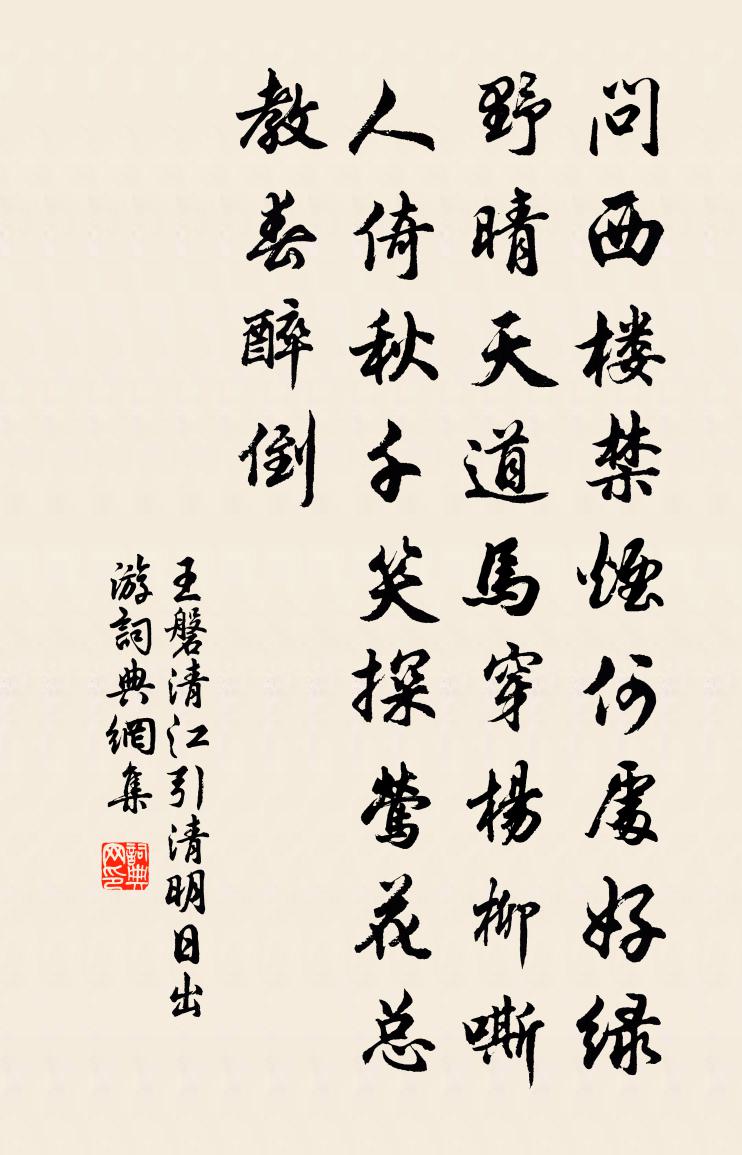 问西楼禁煙何處好绿
野晴天道馬穿楊柳嘶
人倚秋千笑探鶯花总
教春醉倒
王磐清江引清明日出
游詞典網集
詞典网印